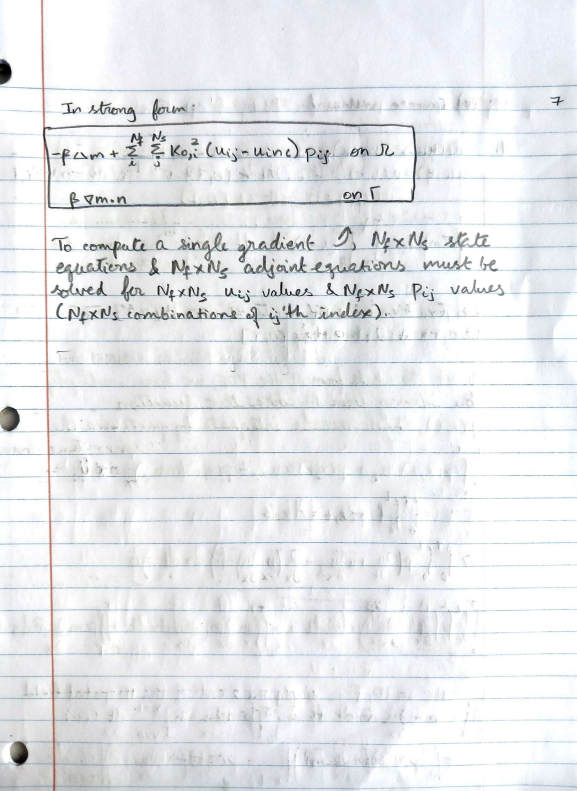 7
In strong form:
-β Δm + Σ_i^{Nf} Σ_j^{Ns} K_{0,i}^2 (u_ij - u_inc) p_ij on Ω
β ∇m.n on Γ
To compute a single gradient ⤴, Nf×Ns state
equations & Nf×Ns adjoint equations must be
solved for Nf×Ns u_ij values & Nf×Ns p_ij values
(Nf×Ns combinations of ij'th index).